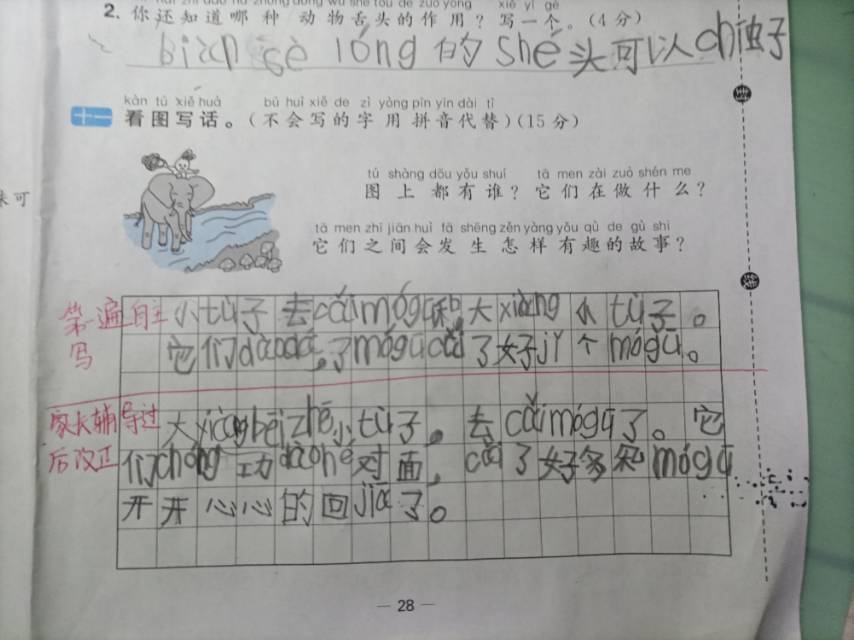 2. 你还知道哪种动物舌头的作用？写一个。(4分)
biàn sè lóng 的 shé 头可以人 chī 虫子
kàn tú xiě huà bú huì xiě de zì yòng pīn yīn dài tì
十一 看图写话。(不会写的字用拼音代替)(15分)
tú shàng dōu yǒu shuí tā men zài zuò shén me
图上都有谁？它们在做什么？
tā men zhī jiān huì fā shēng zěn yàng yǒu qù de gù shi
它们之间会发生怎样有趣的故事？
第一遍自主写
小tù子去cǎi mógū和大xiàng小tù子。
它们dào dá了mógū cǎi了好jǐ个mógū。
家长辅导过后改正
大xiàng bēi zhē小tù子。去cǎi mógū了。它
们chéng功dào hé对面，cǎi了好多和mógū
开开心心的回jiā了。
— 28 —
封
线